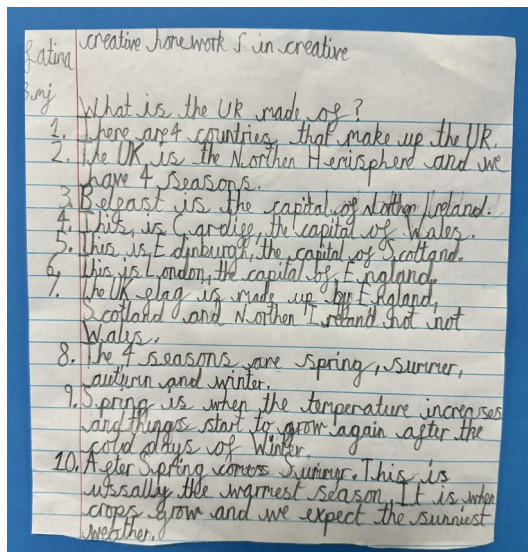 creative homework is in creative
Latina
3.mj
What is the UK made of?
1. There are 4 countries that make up the UK.
2. The UK is the Northen Hemisphere and we
have 4 seasons.
3. Belfast is the capital of Northen Ireland.
4. This is Cardiff, the capital of Wales.
5. This is Edinburgh, the capital of Scotland.
6. This is London, the capital of England.
7. The UK flag is made up by England,
Scotland and Northen Ireland not not
Wales.
8. The 4 seasons are spring, summer,
autumn and winter.
9. Spring is when the temperature increases
and things start to grow again after the
cold days of Winter.
10. After Spring comes Summer. This is
ussally the warmest season. It is when
crops grow and we expect the sunniest
weather.